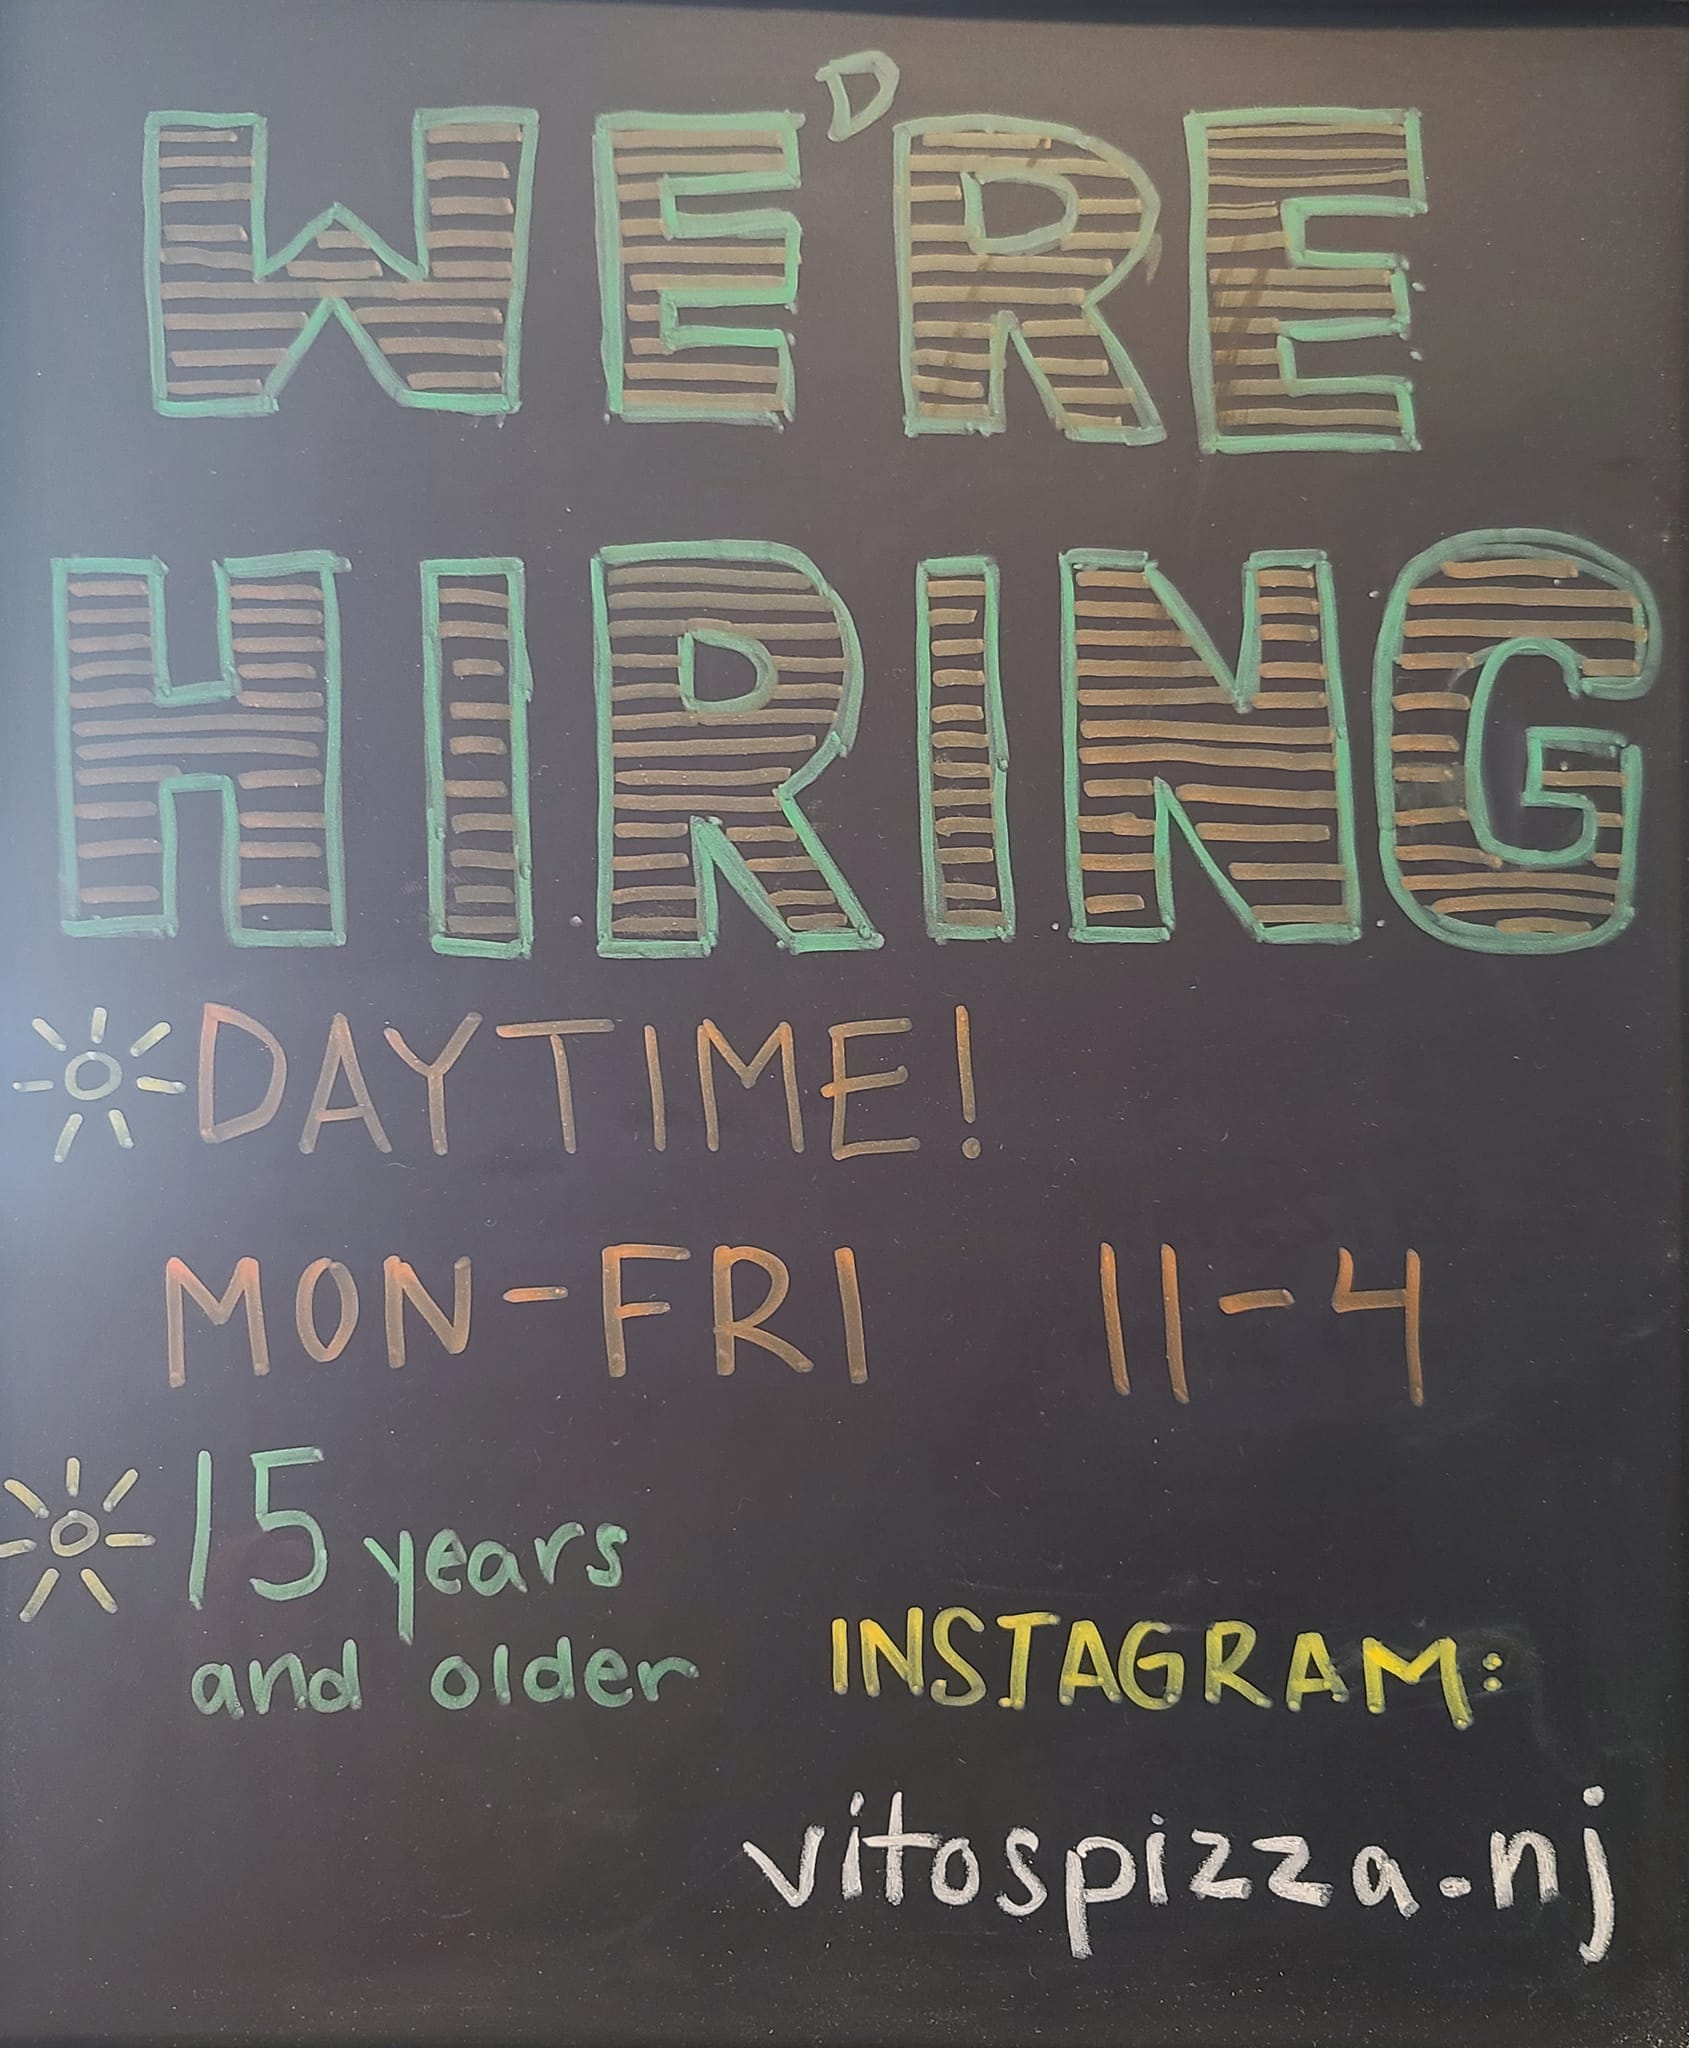 WE'RE
HIRING
DAYTIME!
MON-FRI 11-4
15 years
and older
INSTAGRAM:
vitospizza.nj